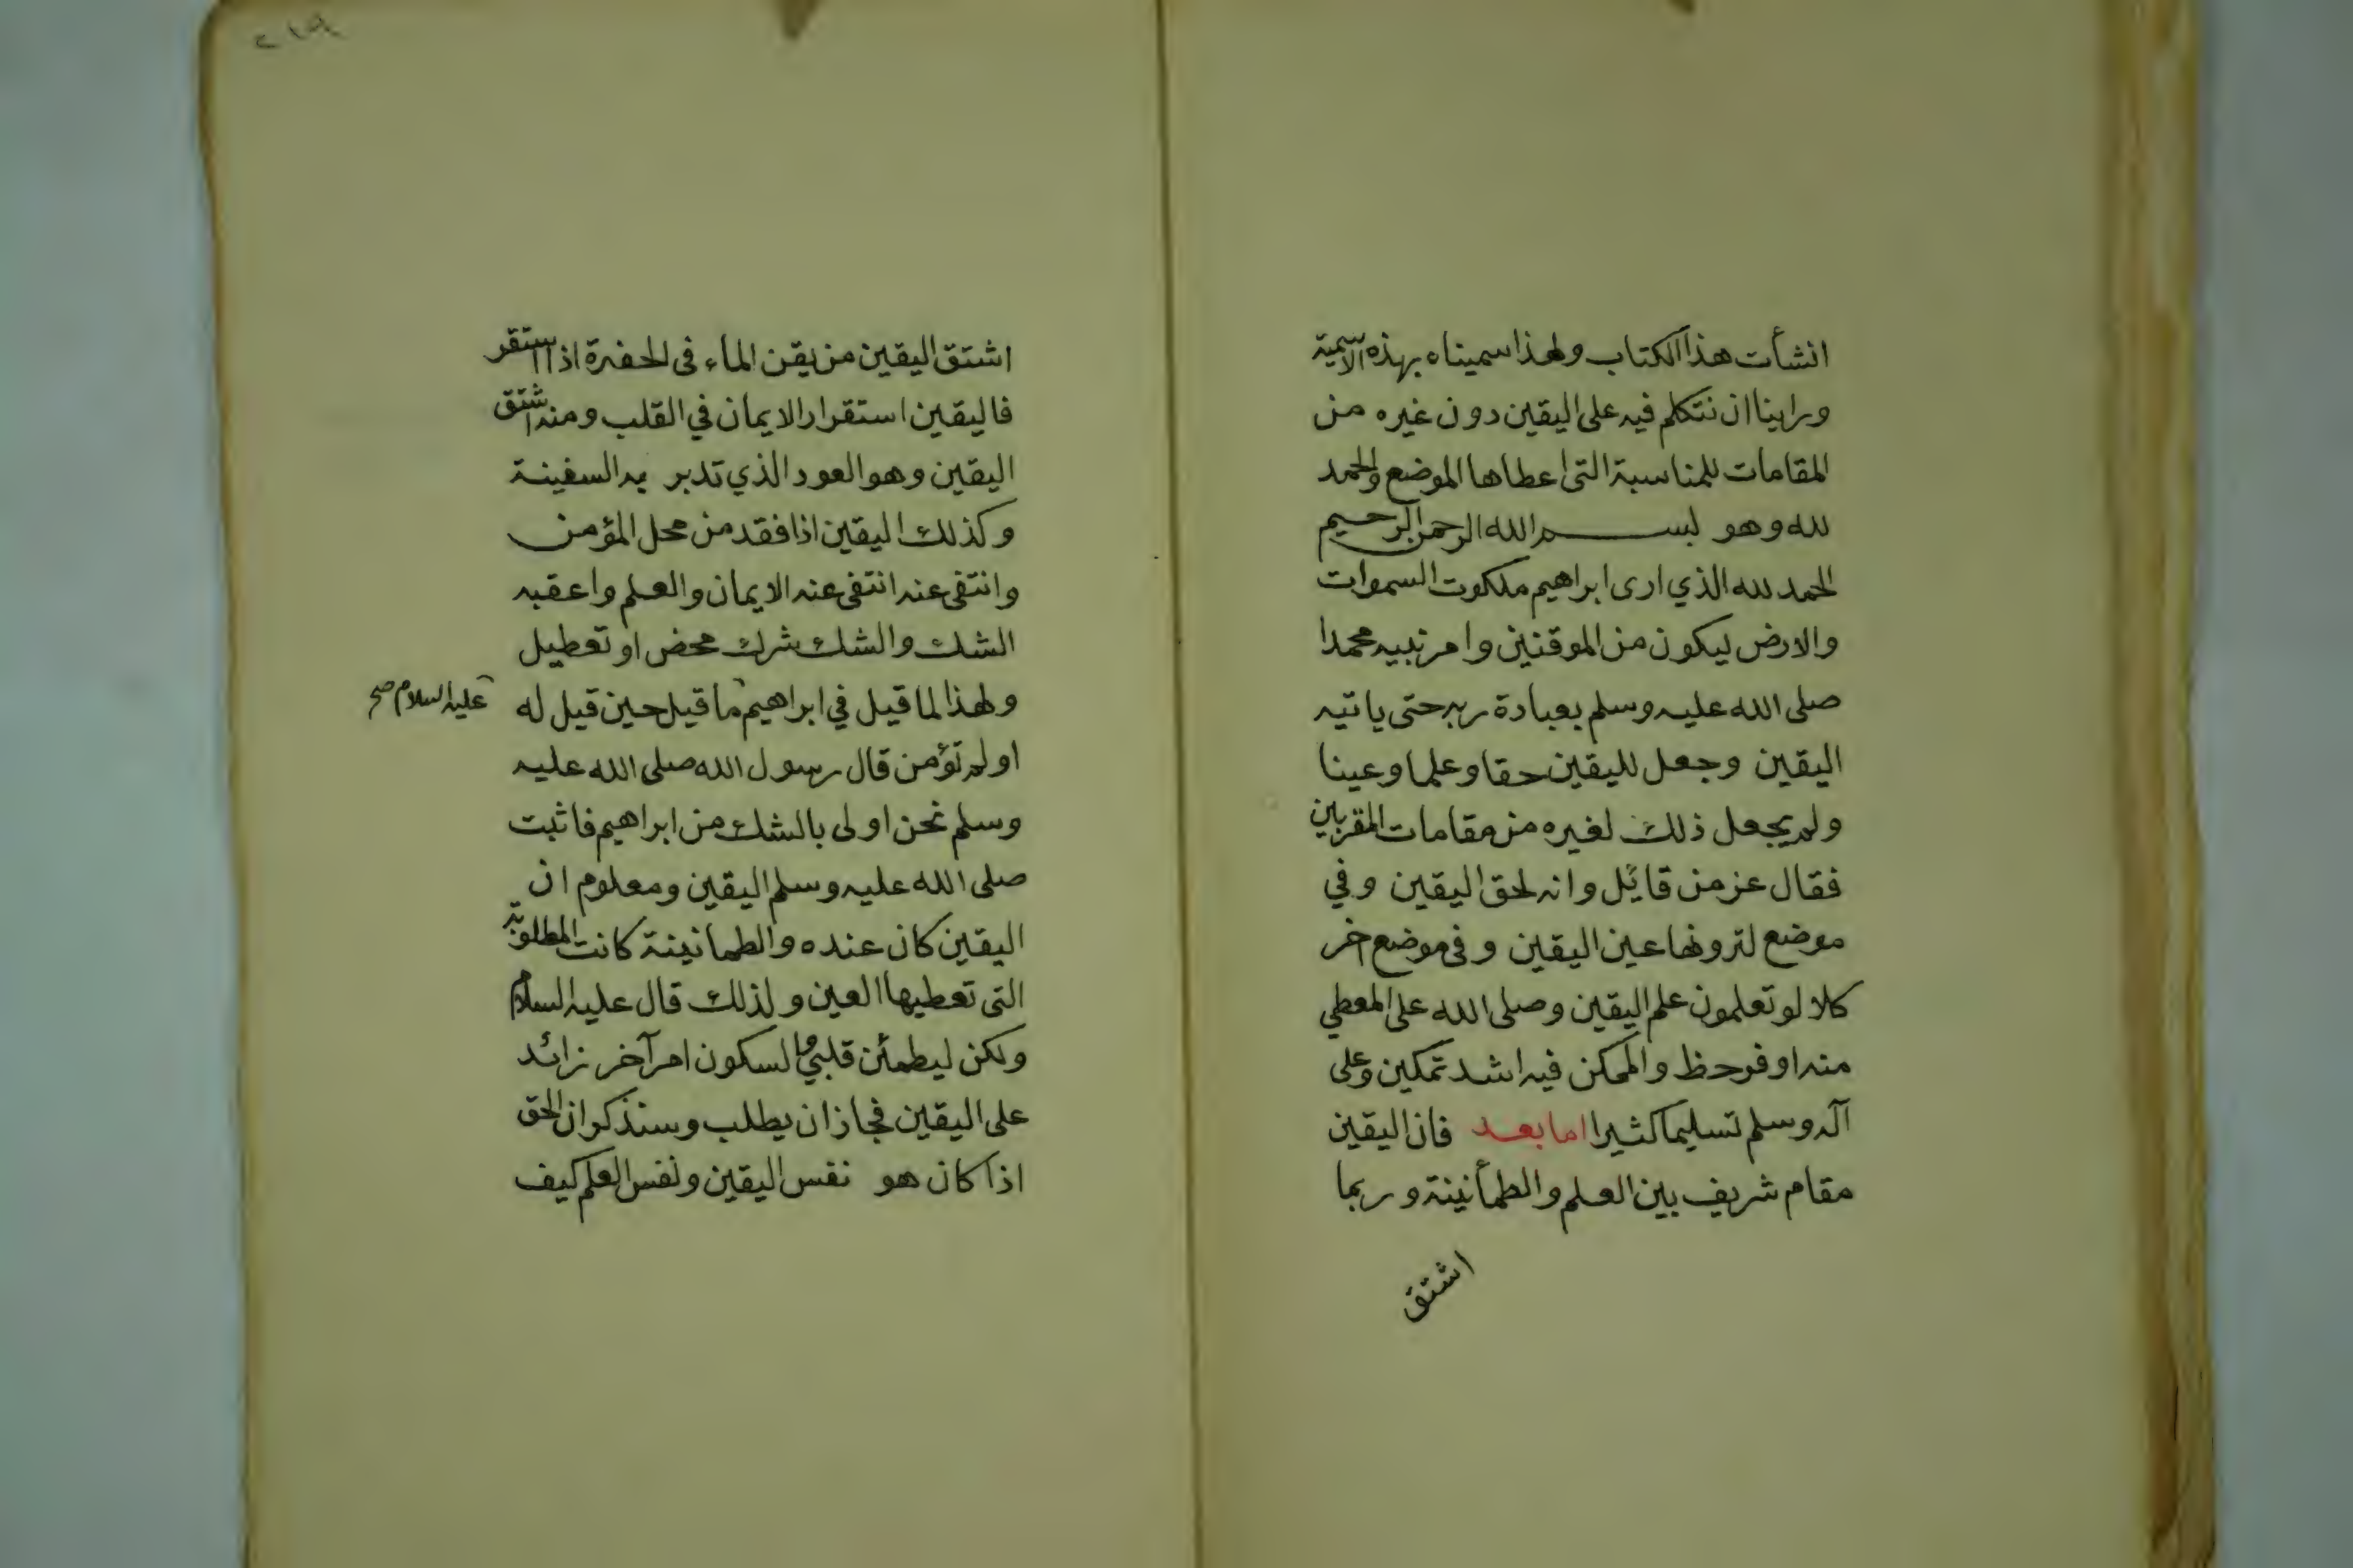 انشأت هذا الكتاب ولهذا سميناه بهذه الاسمية
وراينا ان نتكلم فيه على اليقين دون غيره من
المقامات للمناسبة التى اعطاها الموضع والحمد
لله وهو بسم الله الرحمن الرحيم
الحمد لله الذي ارى ابراهيم ملكوت السموات
والارض ليكون من الموقنين وامر نبيه محمدا
صلى الله عليه وسلم بعبادة ربه حتى ياتيه
اليقين وجعل لليقين حقا وعلما وعينا
ولم يجعل ذلك لغيره من مقامات المقربين
فقال عز من قائل وانه لحق اليقين وفي
موضع لترونها عين اليقين وفى موضع اخر
كلا لو تعلمون علم اليقين وصلى الله على المعطي
منه اوفر حظ والممكن فيه اشد تمكين وعلى
آله وسلم تسليما كثيرا اما بعد فان اليقين
مقام شريف بين العلم والطمأنينة وربما
اشتق
٢١٩
اشتق اليقين من يقن الماء فى الحفرة اذا استقر
فاليقين استقرار الايمان في القلب ومنه اشتق
اليقين وهو العود الذي تدبر به السفينة
وكذلك اليقين اذا فقد من محل المؤمن
وانتفى عنه انتفى عنه الايمان والعلم واعقبه
الشك والشك شرك محض او تعطيل
ولهذا لما قيل في ابراهيم ما قيل حين قيل له
عليه السلام صح
اولم تؤمن قال رسول الله صلى الله عليه
وسلم نحن اولى بالشك من ابراهيم فاثبت
صلى الله عليه وسلم اليقين ومعلوم ان
اليقين كان عنده والطمانينة كانت المطلوبة
التى تعطيها العين ولذلك قال عليه السلام
ولكن ليطمئن قلبي والسكون امر آخر زائد
على اليقين فجاز ان يطلب وسنذكر ان الحق
اذا كان هو نفس اليقين ونفس العلم كيف